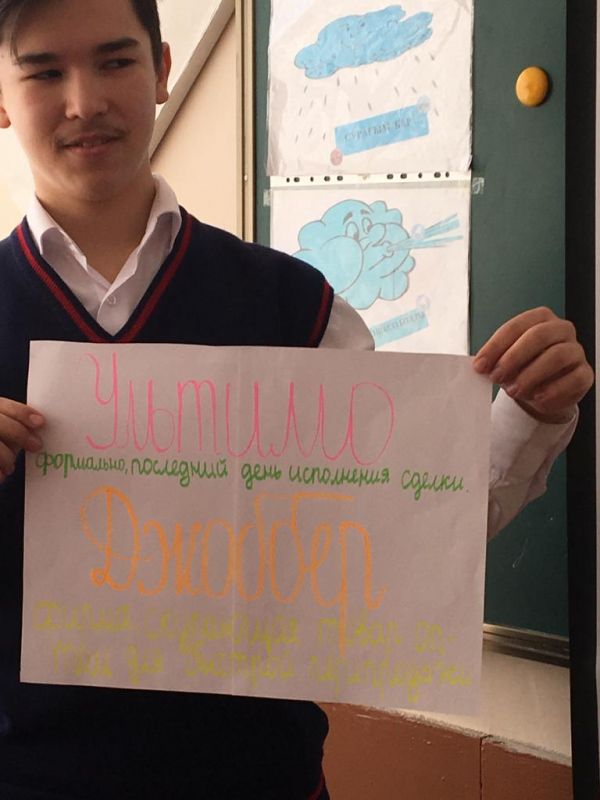 СУРАҒЫМ БАР...
Ультимо
формально, последний день исполнения сделки.
Джоббер
скупающие товар оп-
том для быстрой перепродажи